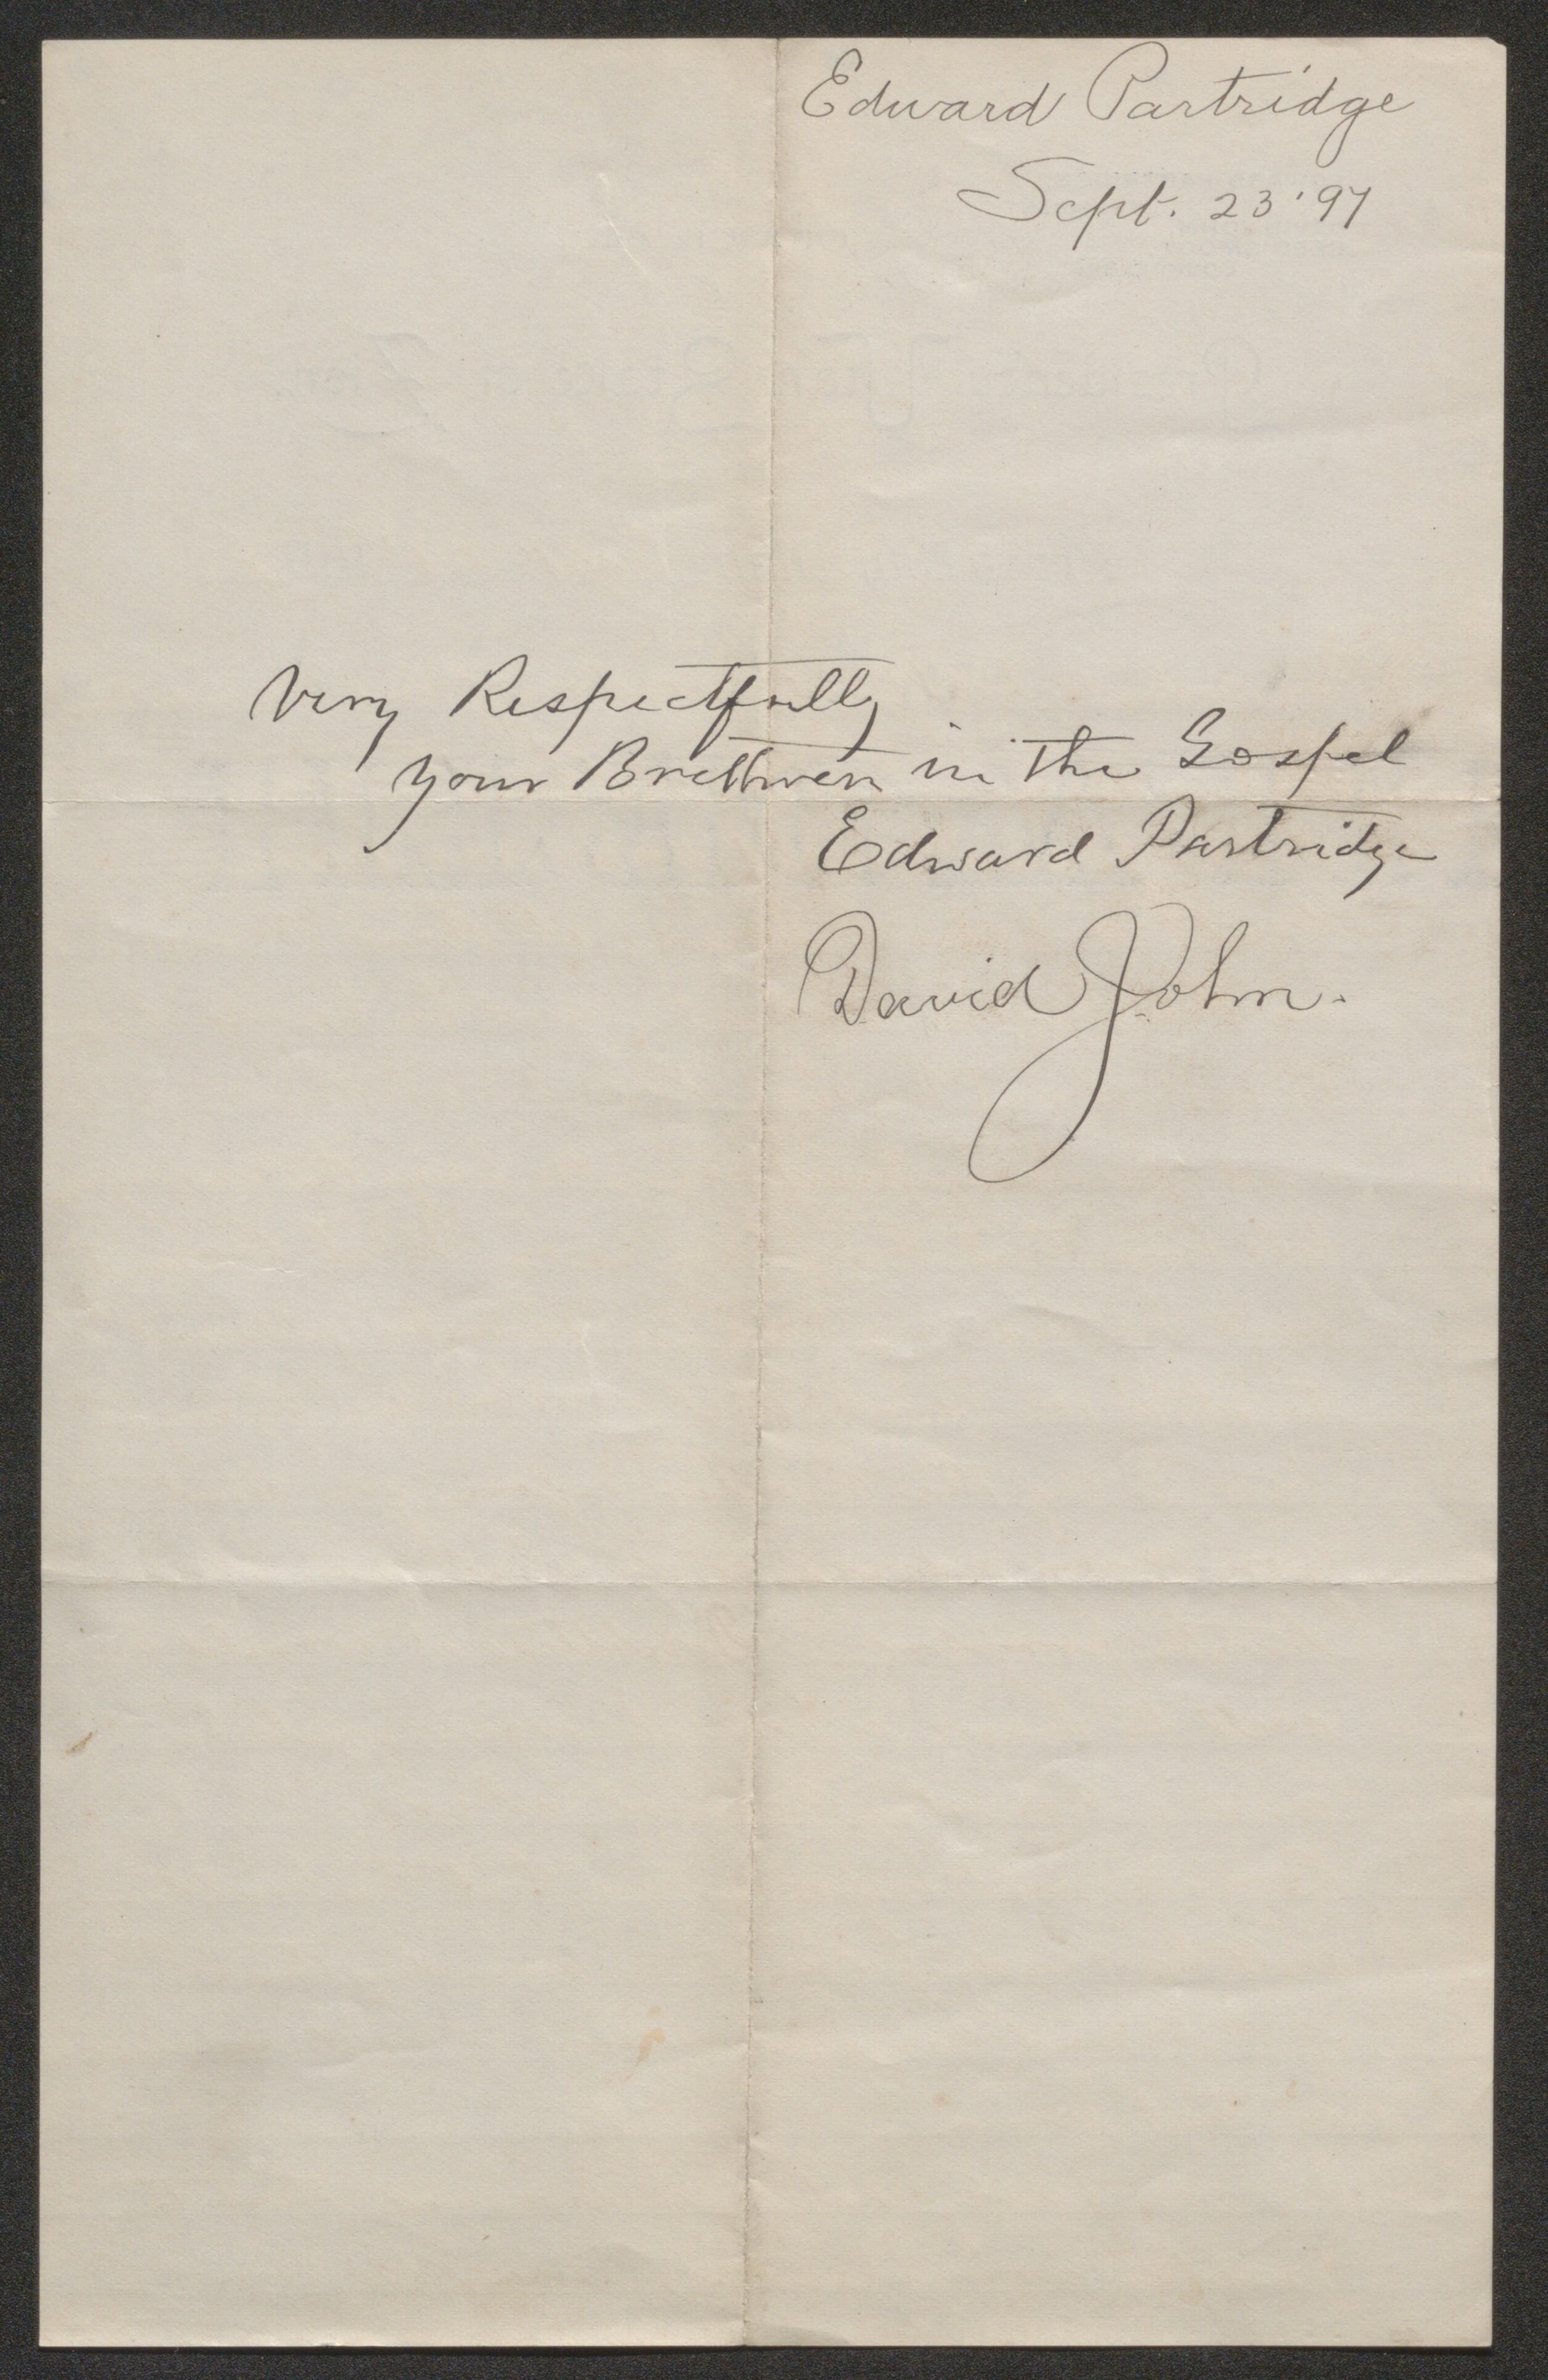 Edward Partridge
Sept. 23 '97
Very Respectfully
your Brethren in the Gospel
Edward Partridge
David John.